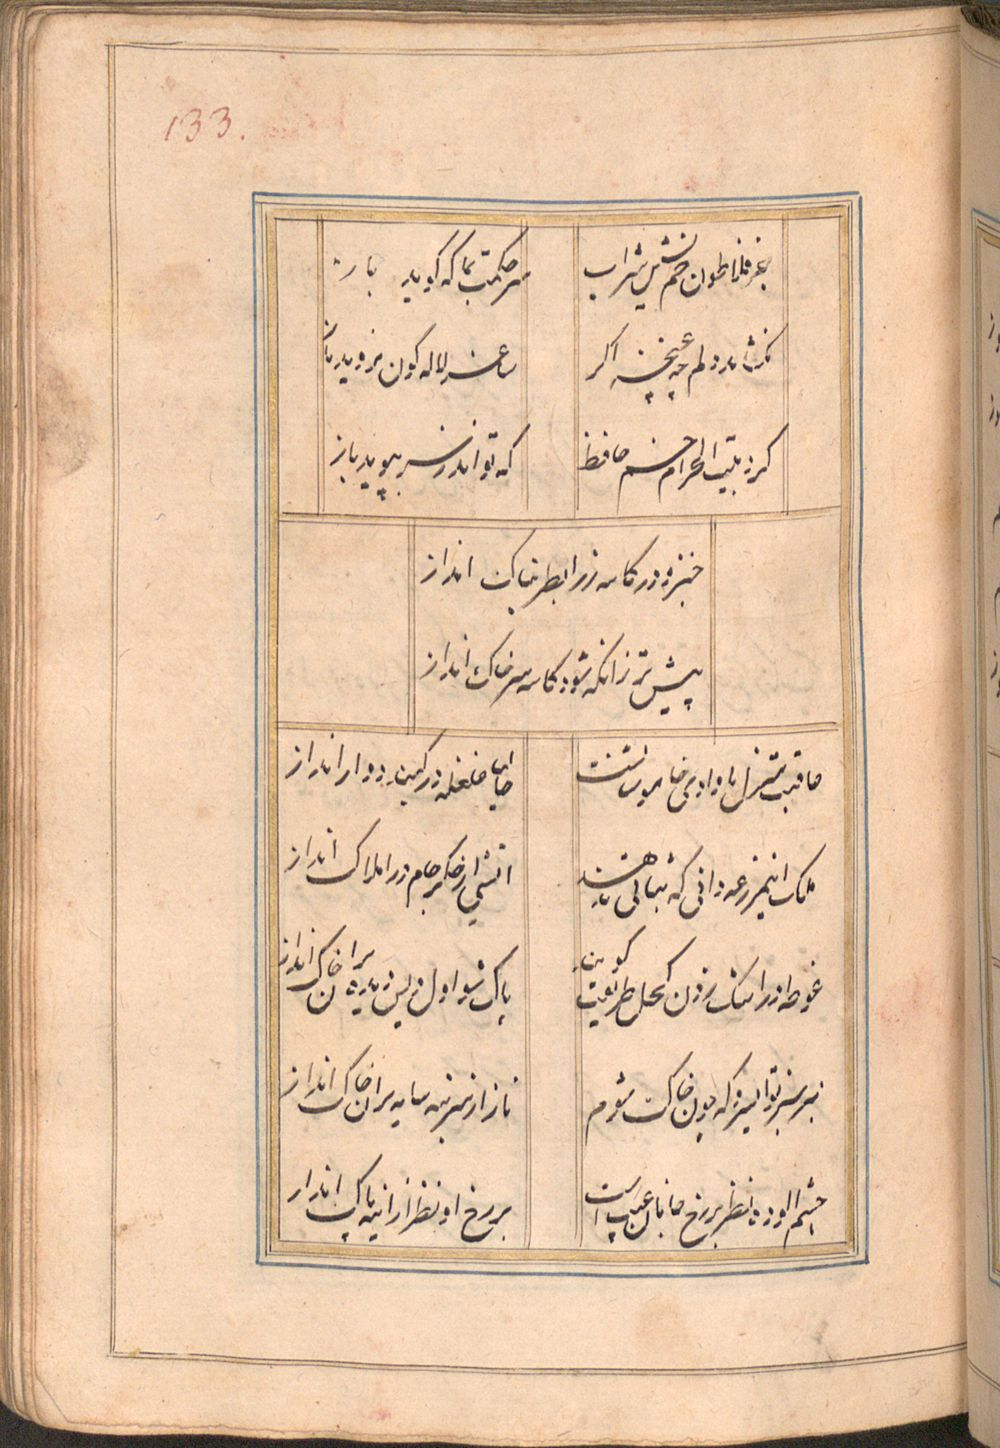 133.
بغیر فلاطون خم نشین شراب
سر حکمت بما که کوید باز
نکشاید دلم چو غنچه اکر
ساغر لاله کون نبوید باز
کرد بیت الحرام خم حافظ
که تواند بسر بپوید باز
خیز و در کاسه زر اب طربناک انداز
پیش تر زانکه شود کاسه سر خاک انداز
عاقبت منزل ما وادی خاموشانست
حالیا غلغله در کنبد دوار انداز
ملک این مزرعه دانی که ثباتی ندهند
اتشی از جکر جام در املاک انداز
غوطه در اشک زدن کاهل طریقت کویند
پاک شو اول و پس دیده بران خاک انداز
بسر سبز تو ای سرو که چون خاک شوم
ناز از سر بنه سایه بران خاک انداز
چشم الوده نظر بر رخ جانان عیب است
بر رخ او نظر از اینه پاک انداز